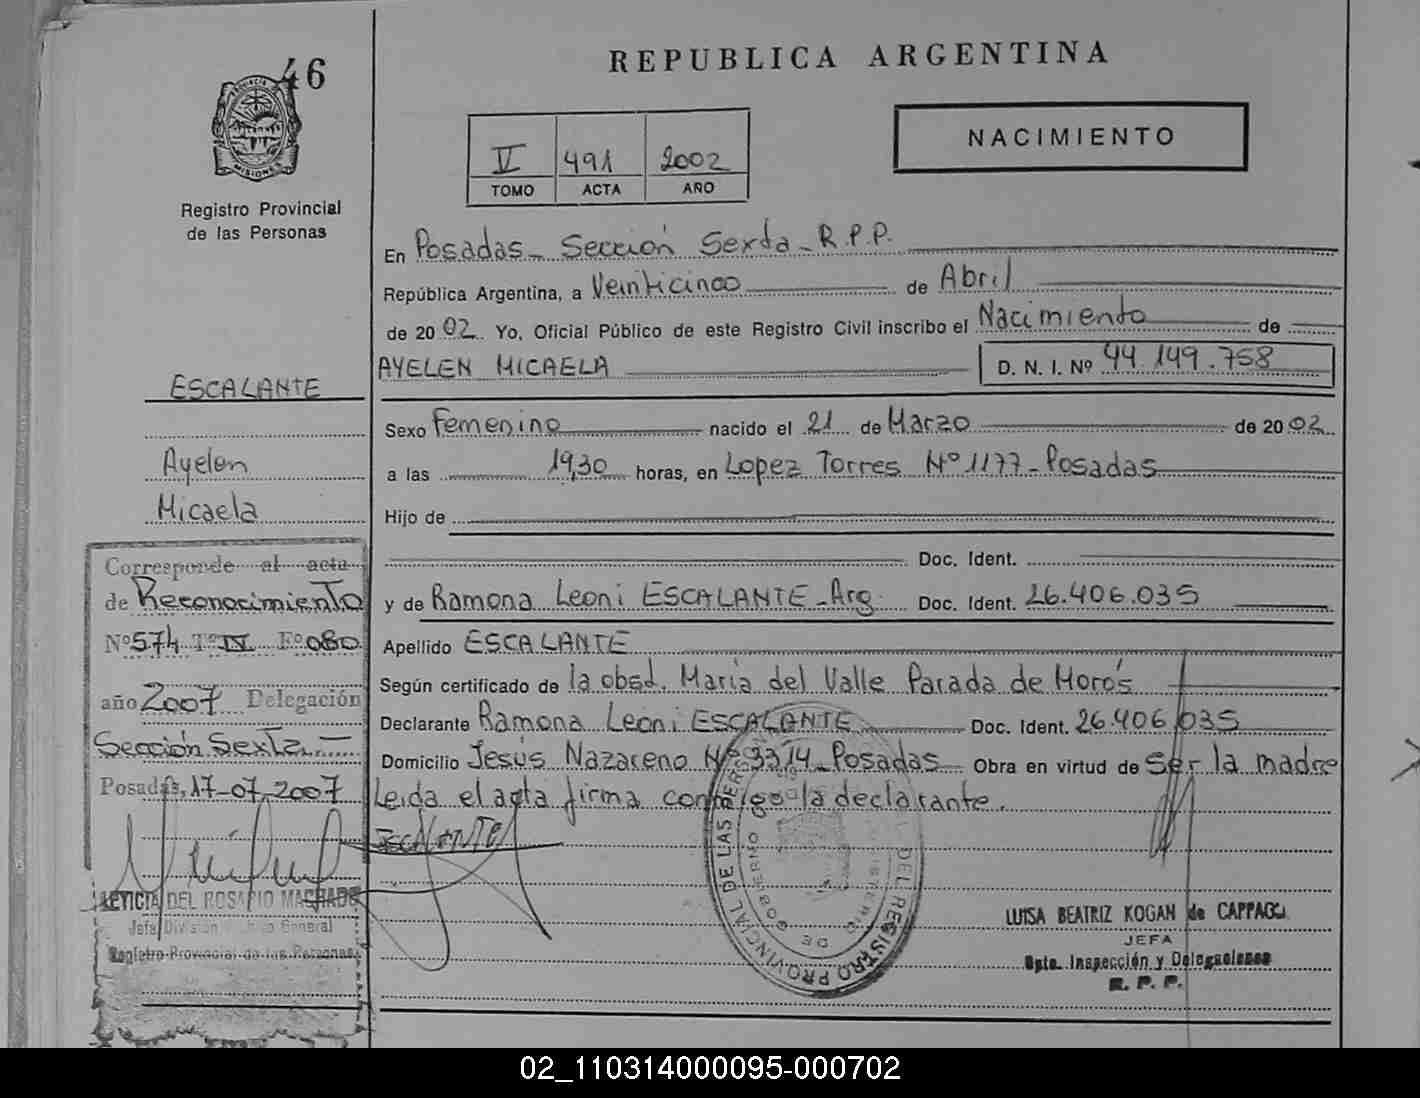 46
REPUBLICA ARGENTINA
PROVINCIA DE
MISIONES
Registro Provincial
de las Personas
II 491 2002
TOMO ACTA AÑO
NACIMIENTO
En Posadas - Sección Sexta - R.P.P.
República Argentina, a Veinticinco de Abril
de 2002. Yo, Oficial Público de este Registro Civil inscribo el Nacimiento de
AYELEN MICAELA D. N. I. Nº 44.149.758
Sexo Femenino nacido el 21 de Marzo de 2002
a las 19,30 horas, en Lopez Torres Nº 1177 - Posadas
Hijo de
Doc. Ident.
y de Ramona Leoni ESCALANTE - Arg. Doc. Ident. 26.406.035
Apellido ESCALANTE
Según certificado de la obsd. Maria del Valle Parada de Morós
Declarante Ramona Leoni ESCALANTE Doc. Ident. 26.406.035
Domicilio Jesús Nazareno Nº 3314 - Posadas Obra en virtud de Ser la madre
Leida el acta firma conmigo la declarante.
ESCALANTE
ESCALANTE
Ayelen
Micaela
Corresponde al acta
de Reconocimiento
Nº 574 Tº IV Fº 080
año 2007 Delegación
Sección Sexta
Posadas, 17-07-2007
LETICIA DEL ROSARIO MACHADO
Jefa División Archivo General
Registro Provincial de las Personas
REGISTRO PROVINCIAL DE LAS PERSONAS
GOBIERNO DE
LUISA BEATRIZ KOGAN de CAPPAGLI
JEFA
Dpto. Inspección y Delegaciones
R. P. P.
02_110314000095-000702